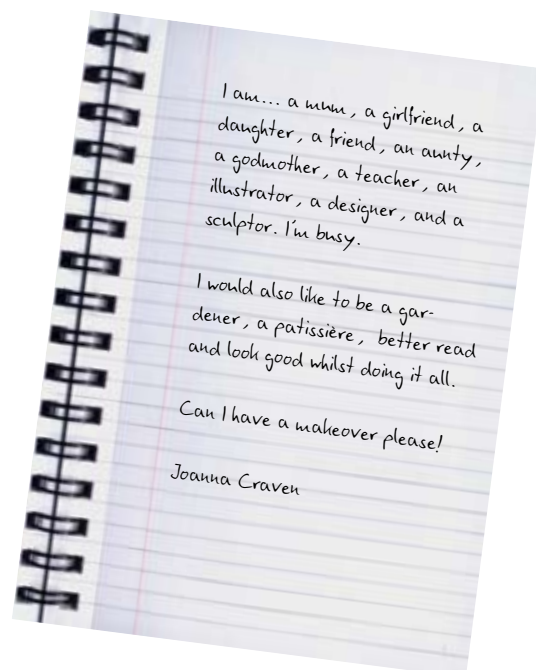 I am... a mum, a girlfriend, a
daughter, a friend, an aunty,
a godmother, a teacher, an
illustrator, a designer, and a
sculptor. I'm busy.
I would also like to be a gar-
dener, a patissière, better read
and look good whilst doing it all.
Can I have a makeover please!
Joanna Craven